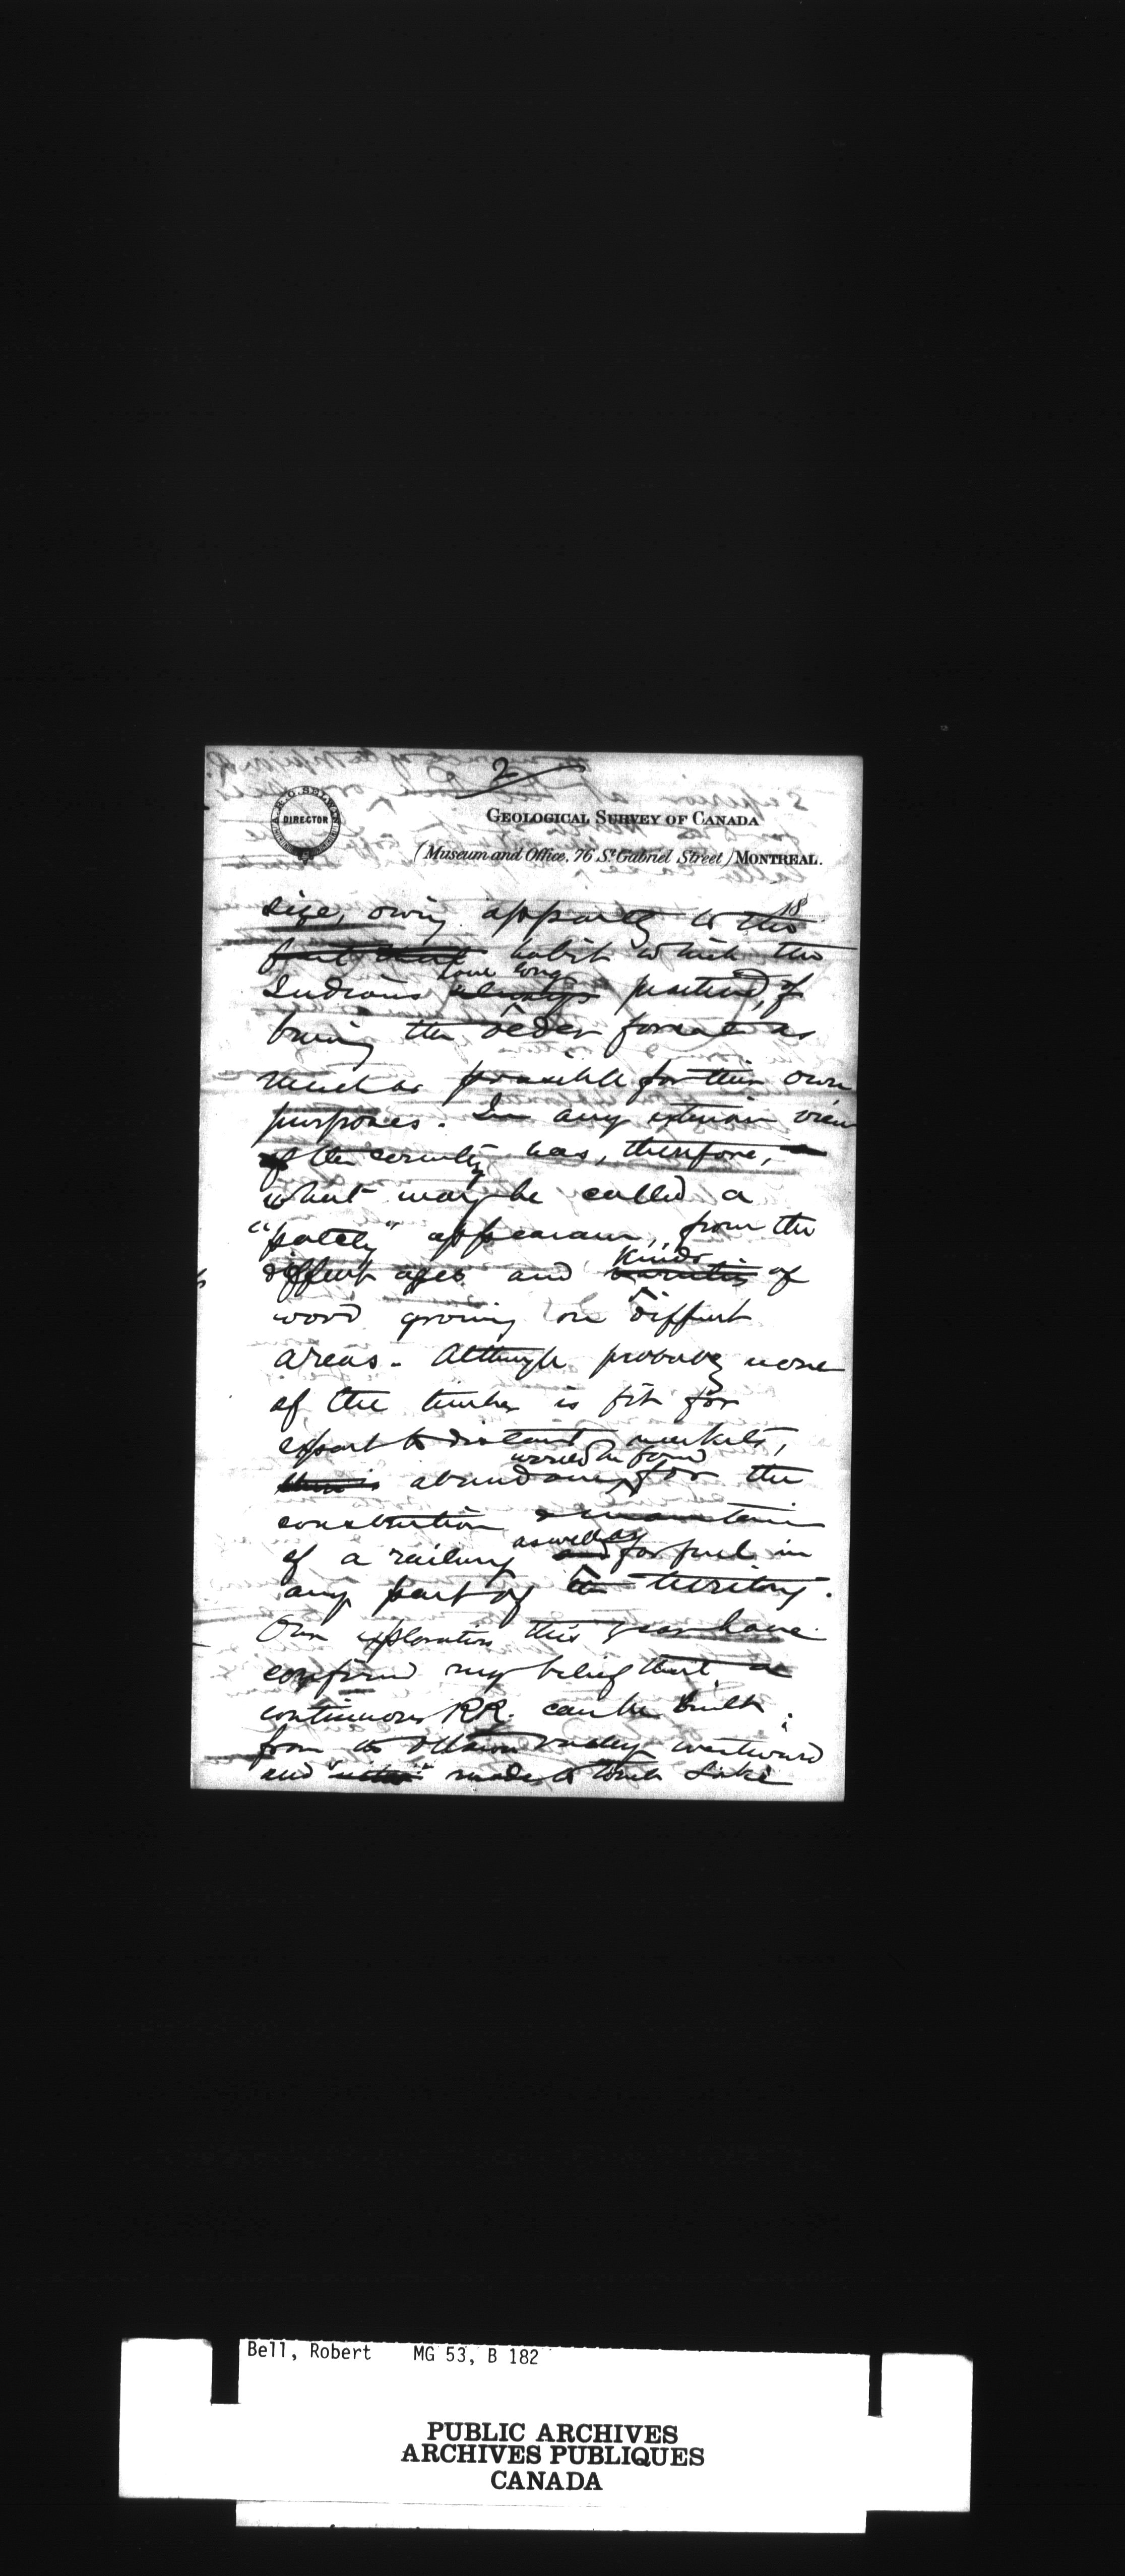 2
A.R.C. SELWYN
DIRECTOR
GEOLOGICAL SURVEY OF CANADA
(Museum and Office, 76 St. Gabriel Street) MONTREAL.
18
size, owing apparently to the
fact that habit which the
have long
Indians always practised, of
burning the older forest as
much as possible for their own
purposes. In any extensive view
of the country has, therefore,
what may be called a
"patchy" appearance, from the
kinds
different ages and varieties of
wood growing on different
areas. Although probably none
of the timber is fit for
export to distant markets,
would be found
there is abundance for the
construction & maintain
as well as
of a railway and for fuel in
any part of the territory.
Our exploration this year have
confirmed my belief that a
continuous RR. can be built
from the Ottawa valley westward
and made to touch Lake
Bell, Robert MG 53, B 182
PUBLIC ARCHIVES
ARCHIVES PUBLIQUES
CANADA